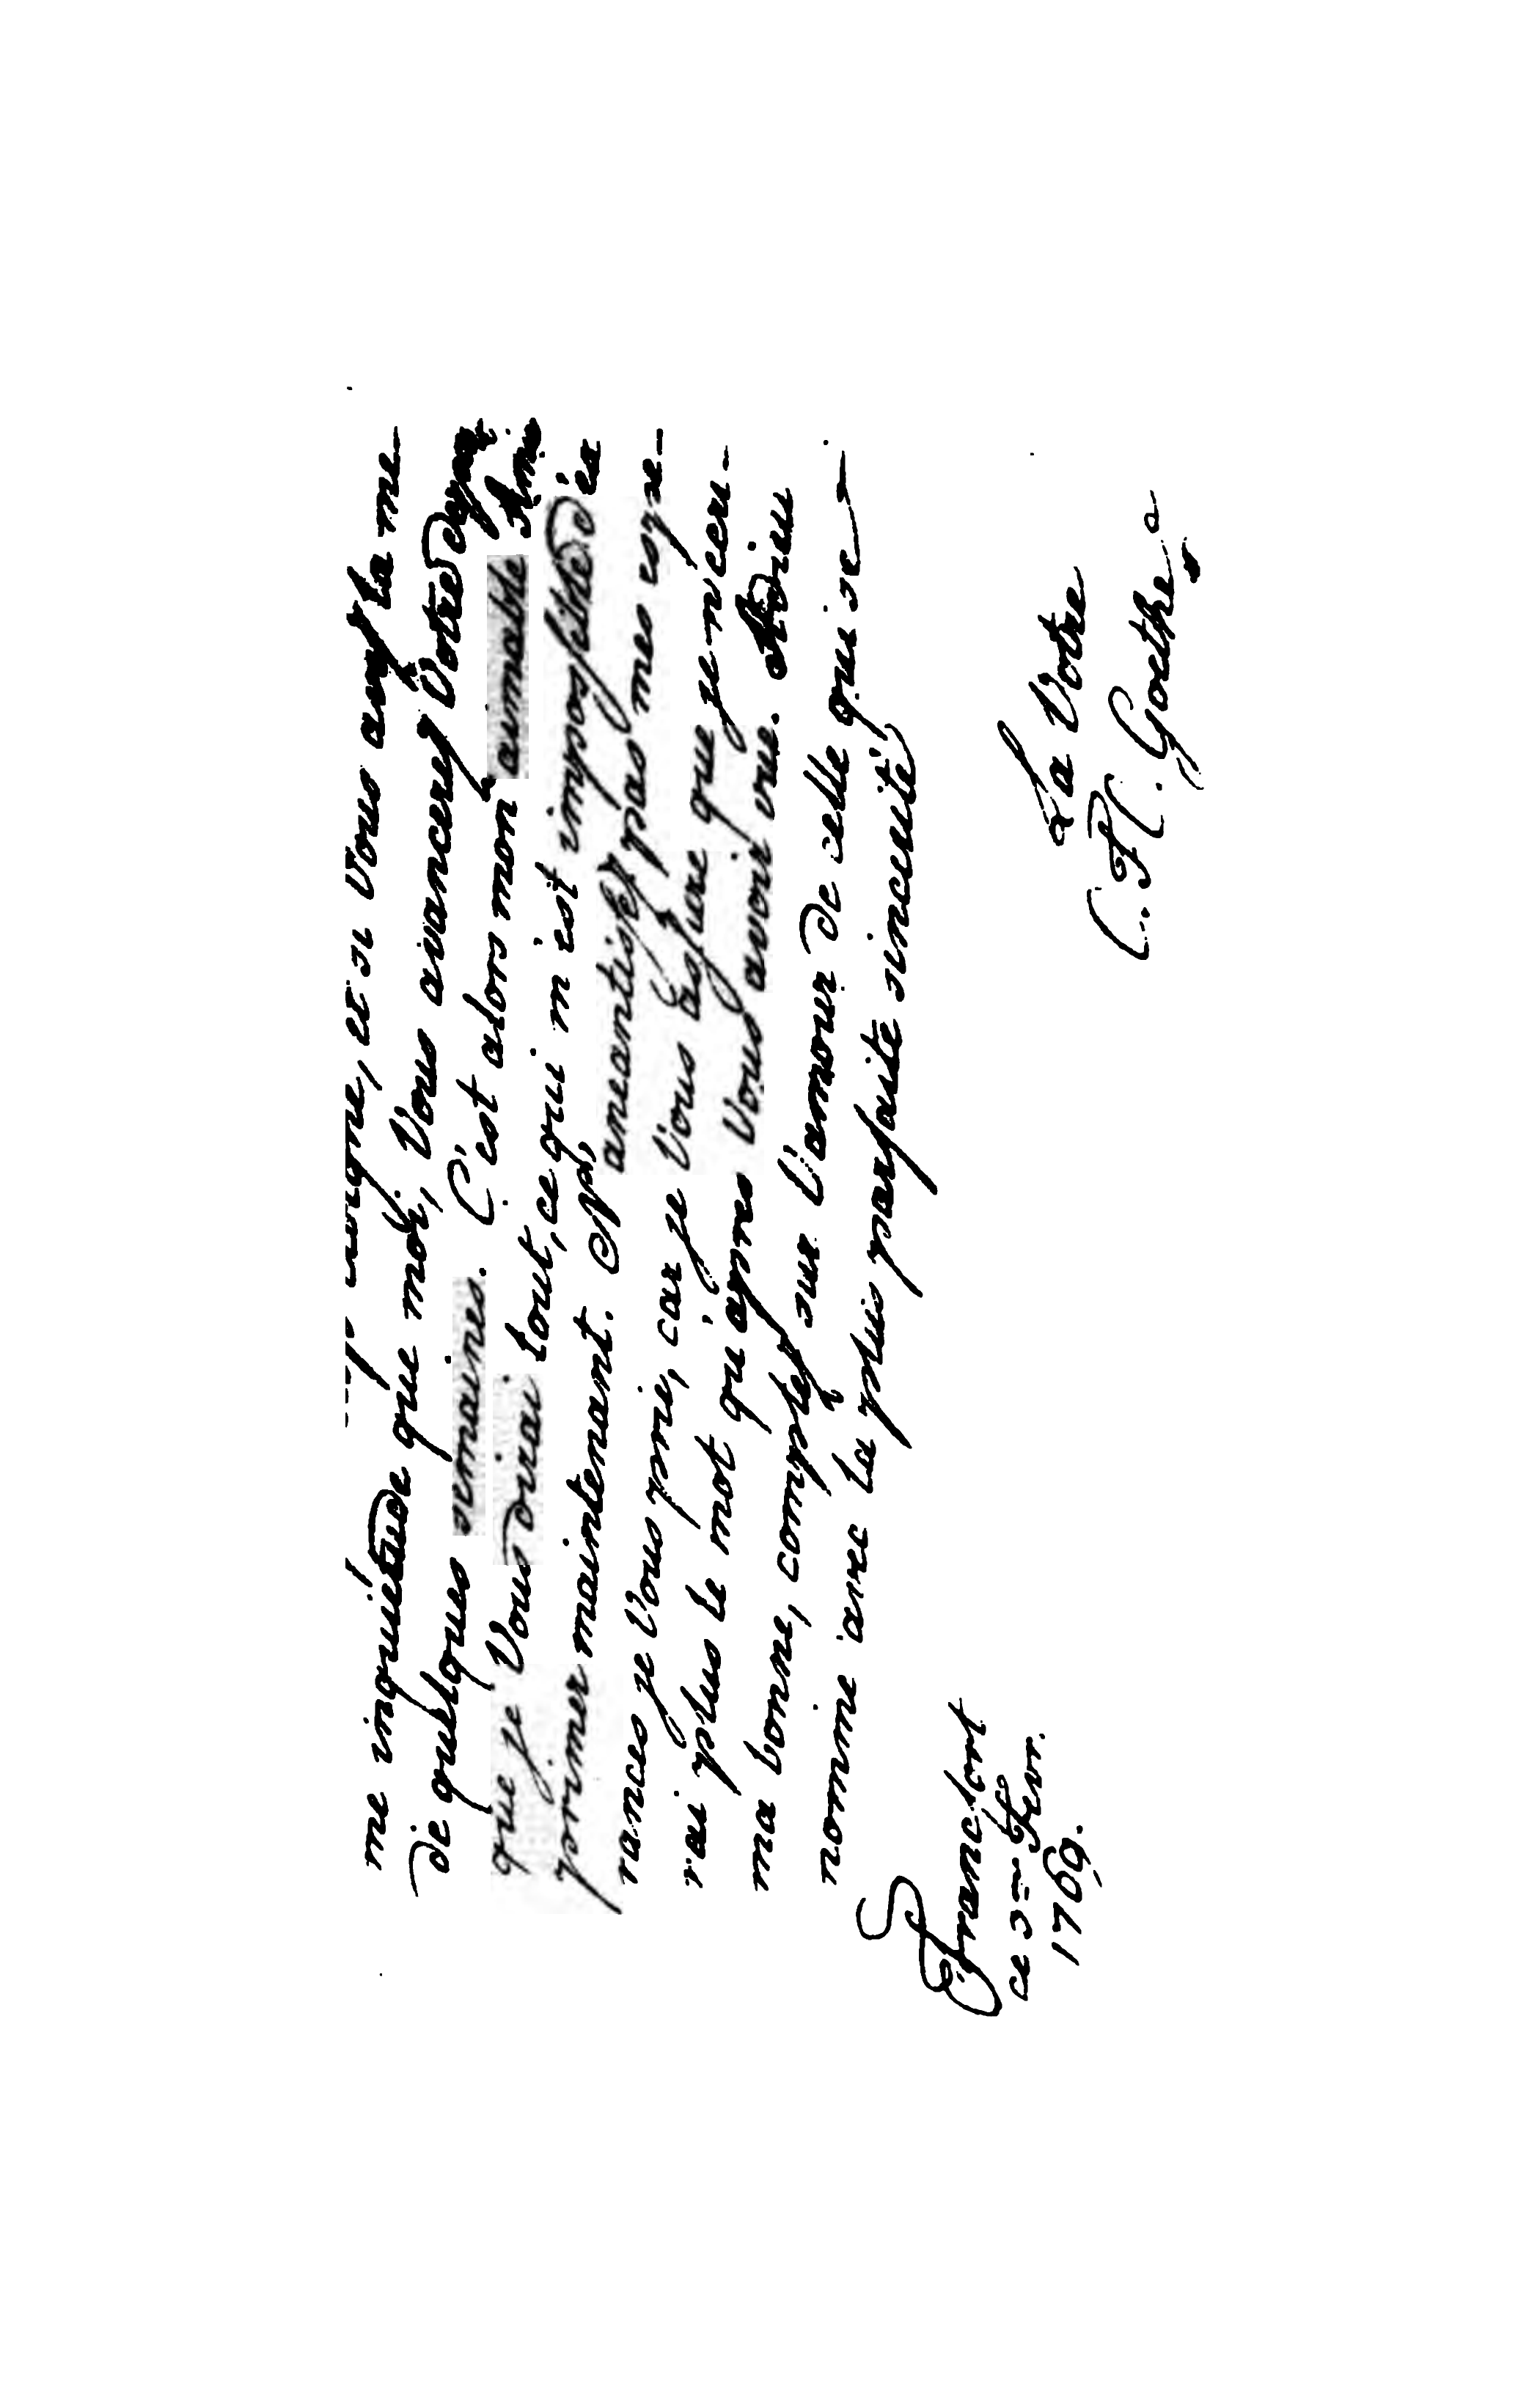 et si Vous avez la me-
me inquiétude que moi, Vous avancerez Votre depart
de quelques semaines. C'est alors mon aimable Ame
que je Vous dirai tout, ce qui m'est impossible d'ex
primer maintenant. N'aneantissez pas mes espe-
rances je Vous prie, car je Vous assure que je n'ecri-
rai plus le mot qu'apres Vous avoir vue. Adieu
ma bonne, comptez sur l'amour de celle qui se
nomme avec la plus parfaite sincerité
La Votre
Francfort
ce 3me Fevr.
1769.
Goethe